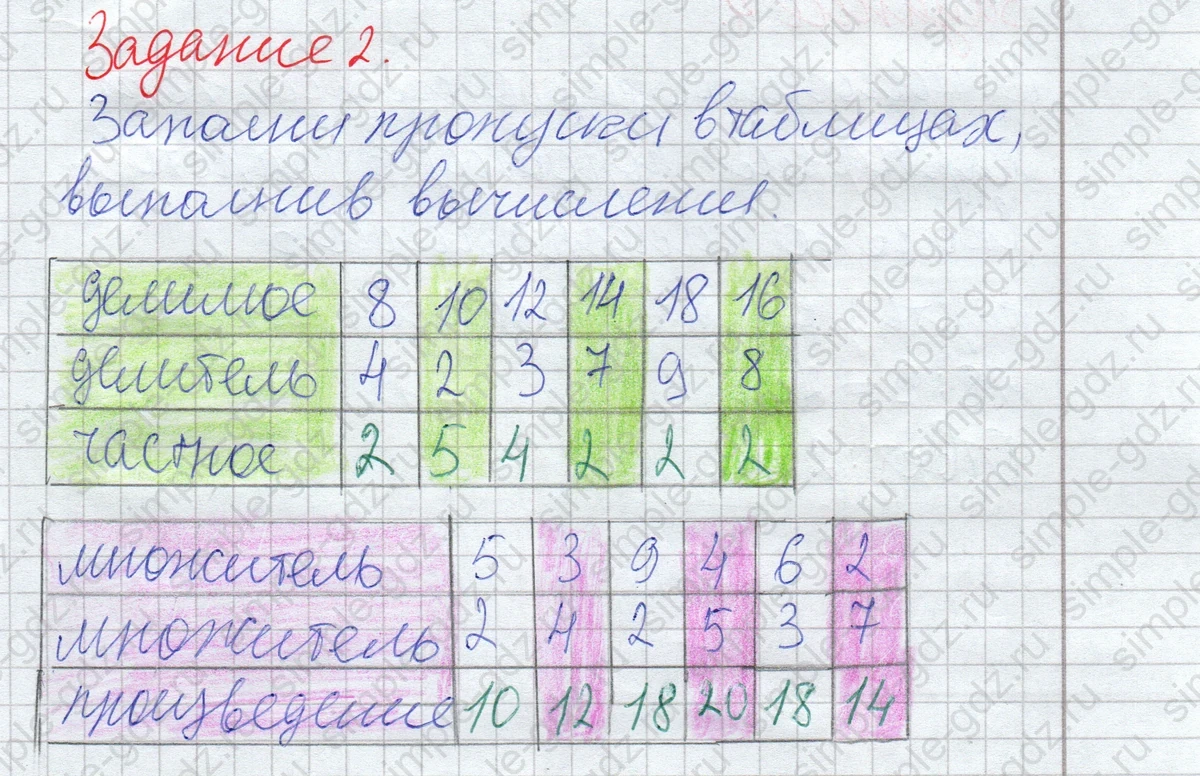 Задание 2.
Заполни пропуски в таблицах,
выполнив вычисления.
делимое 8 10 12 14 18 16
делитель 4 2 3 7 9 8
частное 2 5 4 2 2 2
множитель 5 3 9 4 6 2
множитель 2 4 2 5 3 7
произведение 10 12 18 20 18 14
simple-gdz.ru